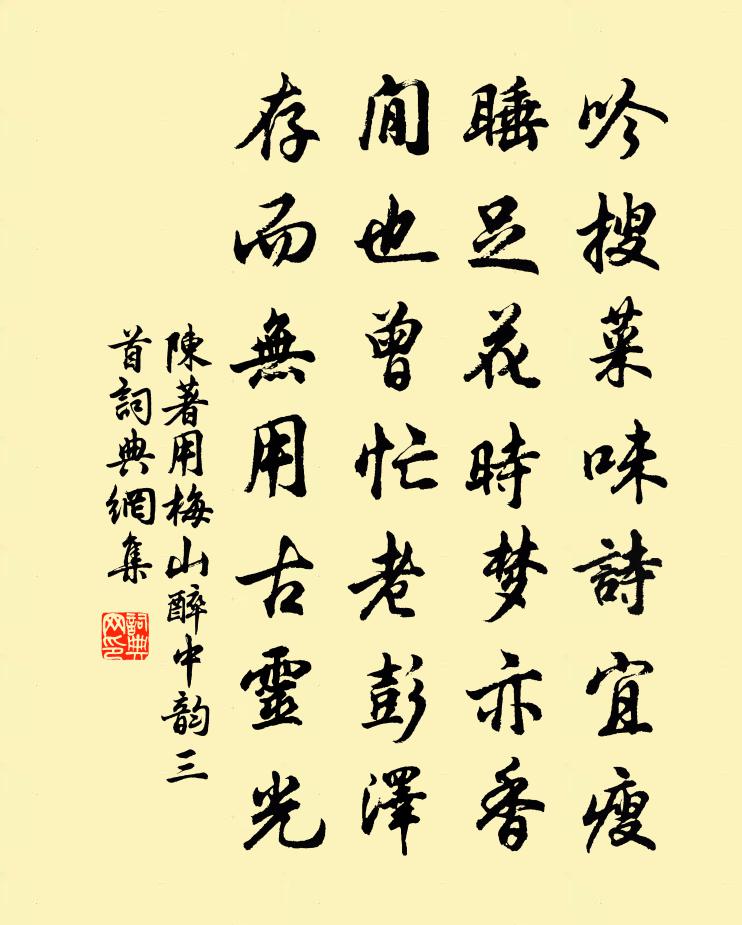 吟搜菜味詩宜瘦
睡足花時梦亦香
閒也曾忙老彭澤
存而無用古靈光
陳著用梅山醉中韵三
首詞典網集
詞典
网印